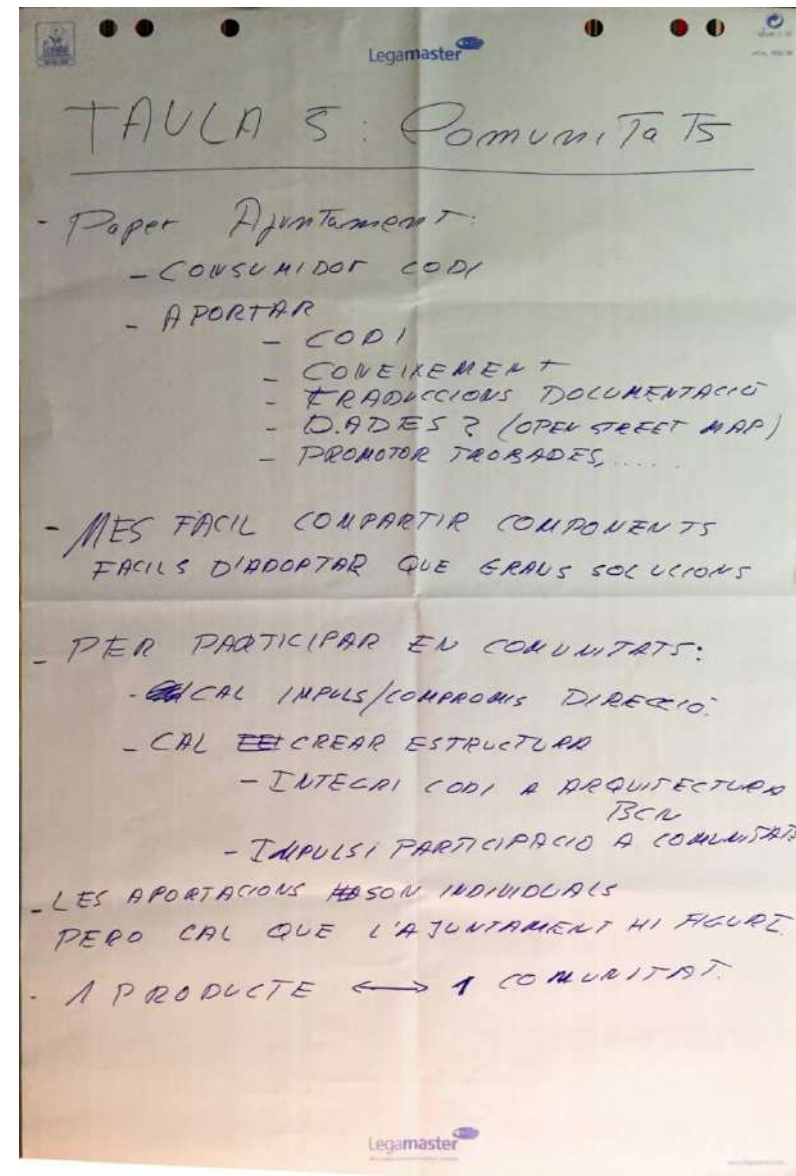 Legamaster
TAULA 5: ComuniTaTs
- Paper AjunTament:
- CONSUMIDOR CODI
- APORTAR
- CODI
- CONEIXEMENT
- TRADUCCIONS DOCUMENTACIÓ
- DADES? (OPEN STREET MAP)
- PROMOTOR TROBADES,.....
- MES FÀCIL COMPARTIR COMPONENTS
FACILS D'ADOPTAR QUE GRANS SOLUCIONS
- PER PARTICIPAR EN COMUNITATS:
- CAL IMPULS/COMPROMIS DIRECCIÓ.
- CAL CREAR ESTRUCTURA
- INTEGRI CODI A ARQUITECTURA
BCN
- IMPULSI PARTICIPACIO A COMUNITATS
- LES APORTACIONS SON INDIVIDUALS
PERO CAL QUE L'AJUNTAMENT HI FIGURI.
- 1 PRODUCTE <-> 1 COMUNITAT.
Legamaster